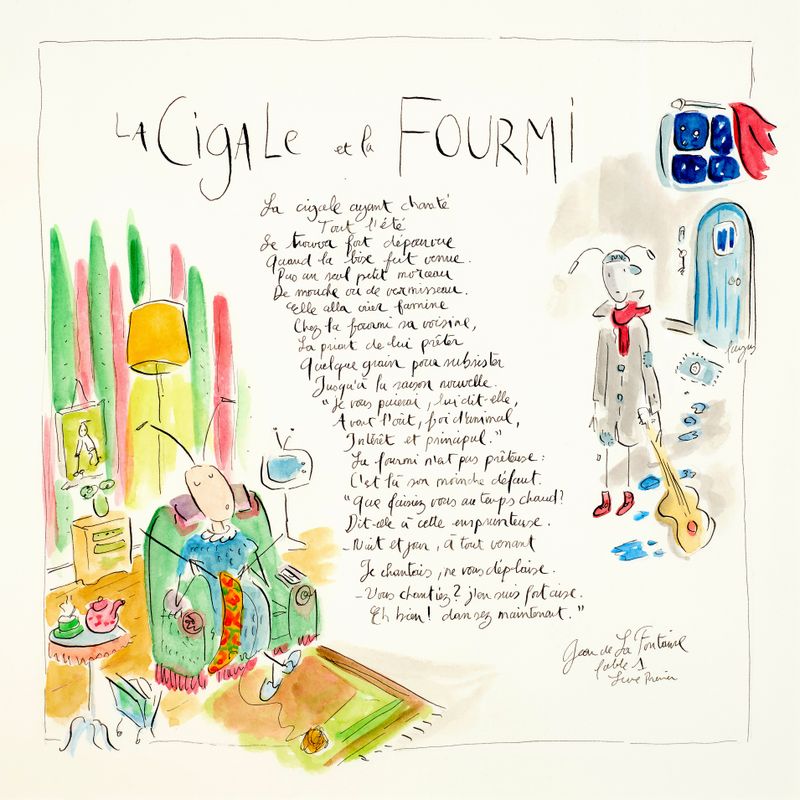 LA CIGALE et la FOURMI
La cigale ayant chanté
Tout l'été
Se trouva fort dépourvue
Quand la bise fut venue.
Pas un seul petit morceau
De mouche ou de vermisseau.
Elle alla crier famine
Chez la fourmi sa voisine,
La priant de lui prêter
Quelque grain pour subsister
Jusqu'à la saison nouvelle.
"Je vous paierai, lui dit-elle,
Avant l'oût, foi d'animal,
Intérêt et principal."
La fourmi n'est pas prêteuse:
C'est là son moindre défaut.
"Que faisiez vous au temps chaud?
Dit-elle à cette emprunteuse.
- Nuit et jour, à tout venant
Je chantais, ne vous déplaise.
- Vous chantiez? j'en suis fort aise.
Eh bien! dansez maintenant."
Jean de La Fontaine
fable 1
Livre Premier